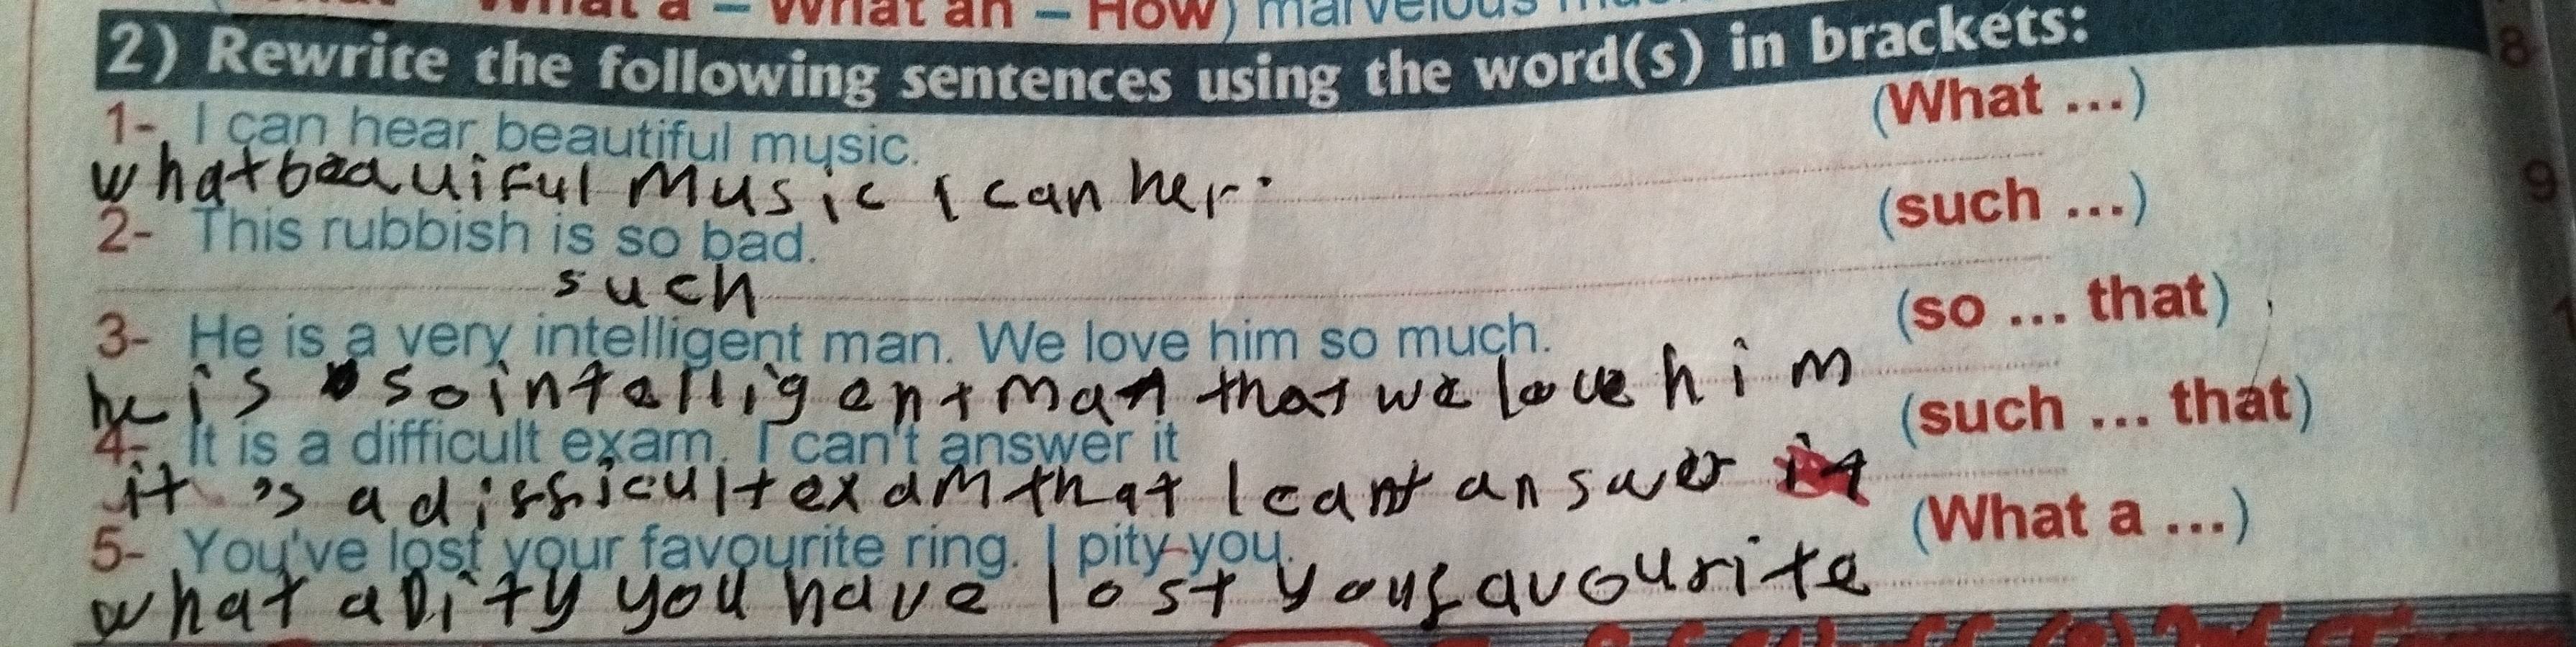 What a – What an – How) marvelous
2) Rewrite the following sentences using the word(s) in brackets:
1- I can hear beautiful music. (What ...)
what beauiful music I can her.
2- This rubbish is so bad. (such ...)
such
3- He is a very intelligent man. We love him so much. (so ... that)
he is so intelligent man that we love him
4- It is a difficult exam. I can't answer it (such ... that)
it 's a difficult exam that I cant answer it
5- You've lost your favourite ring. I pity you. (What a ...)
what a pity you have lost your favourite
8
9